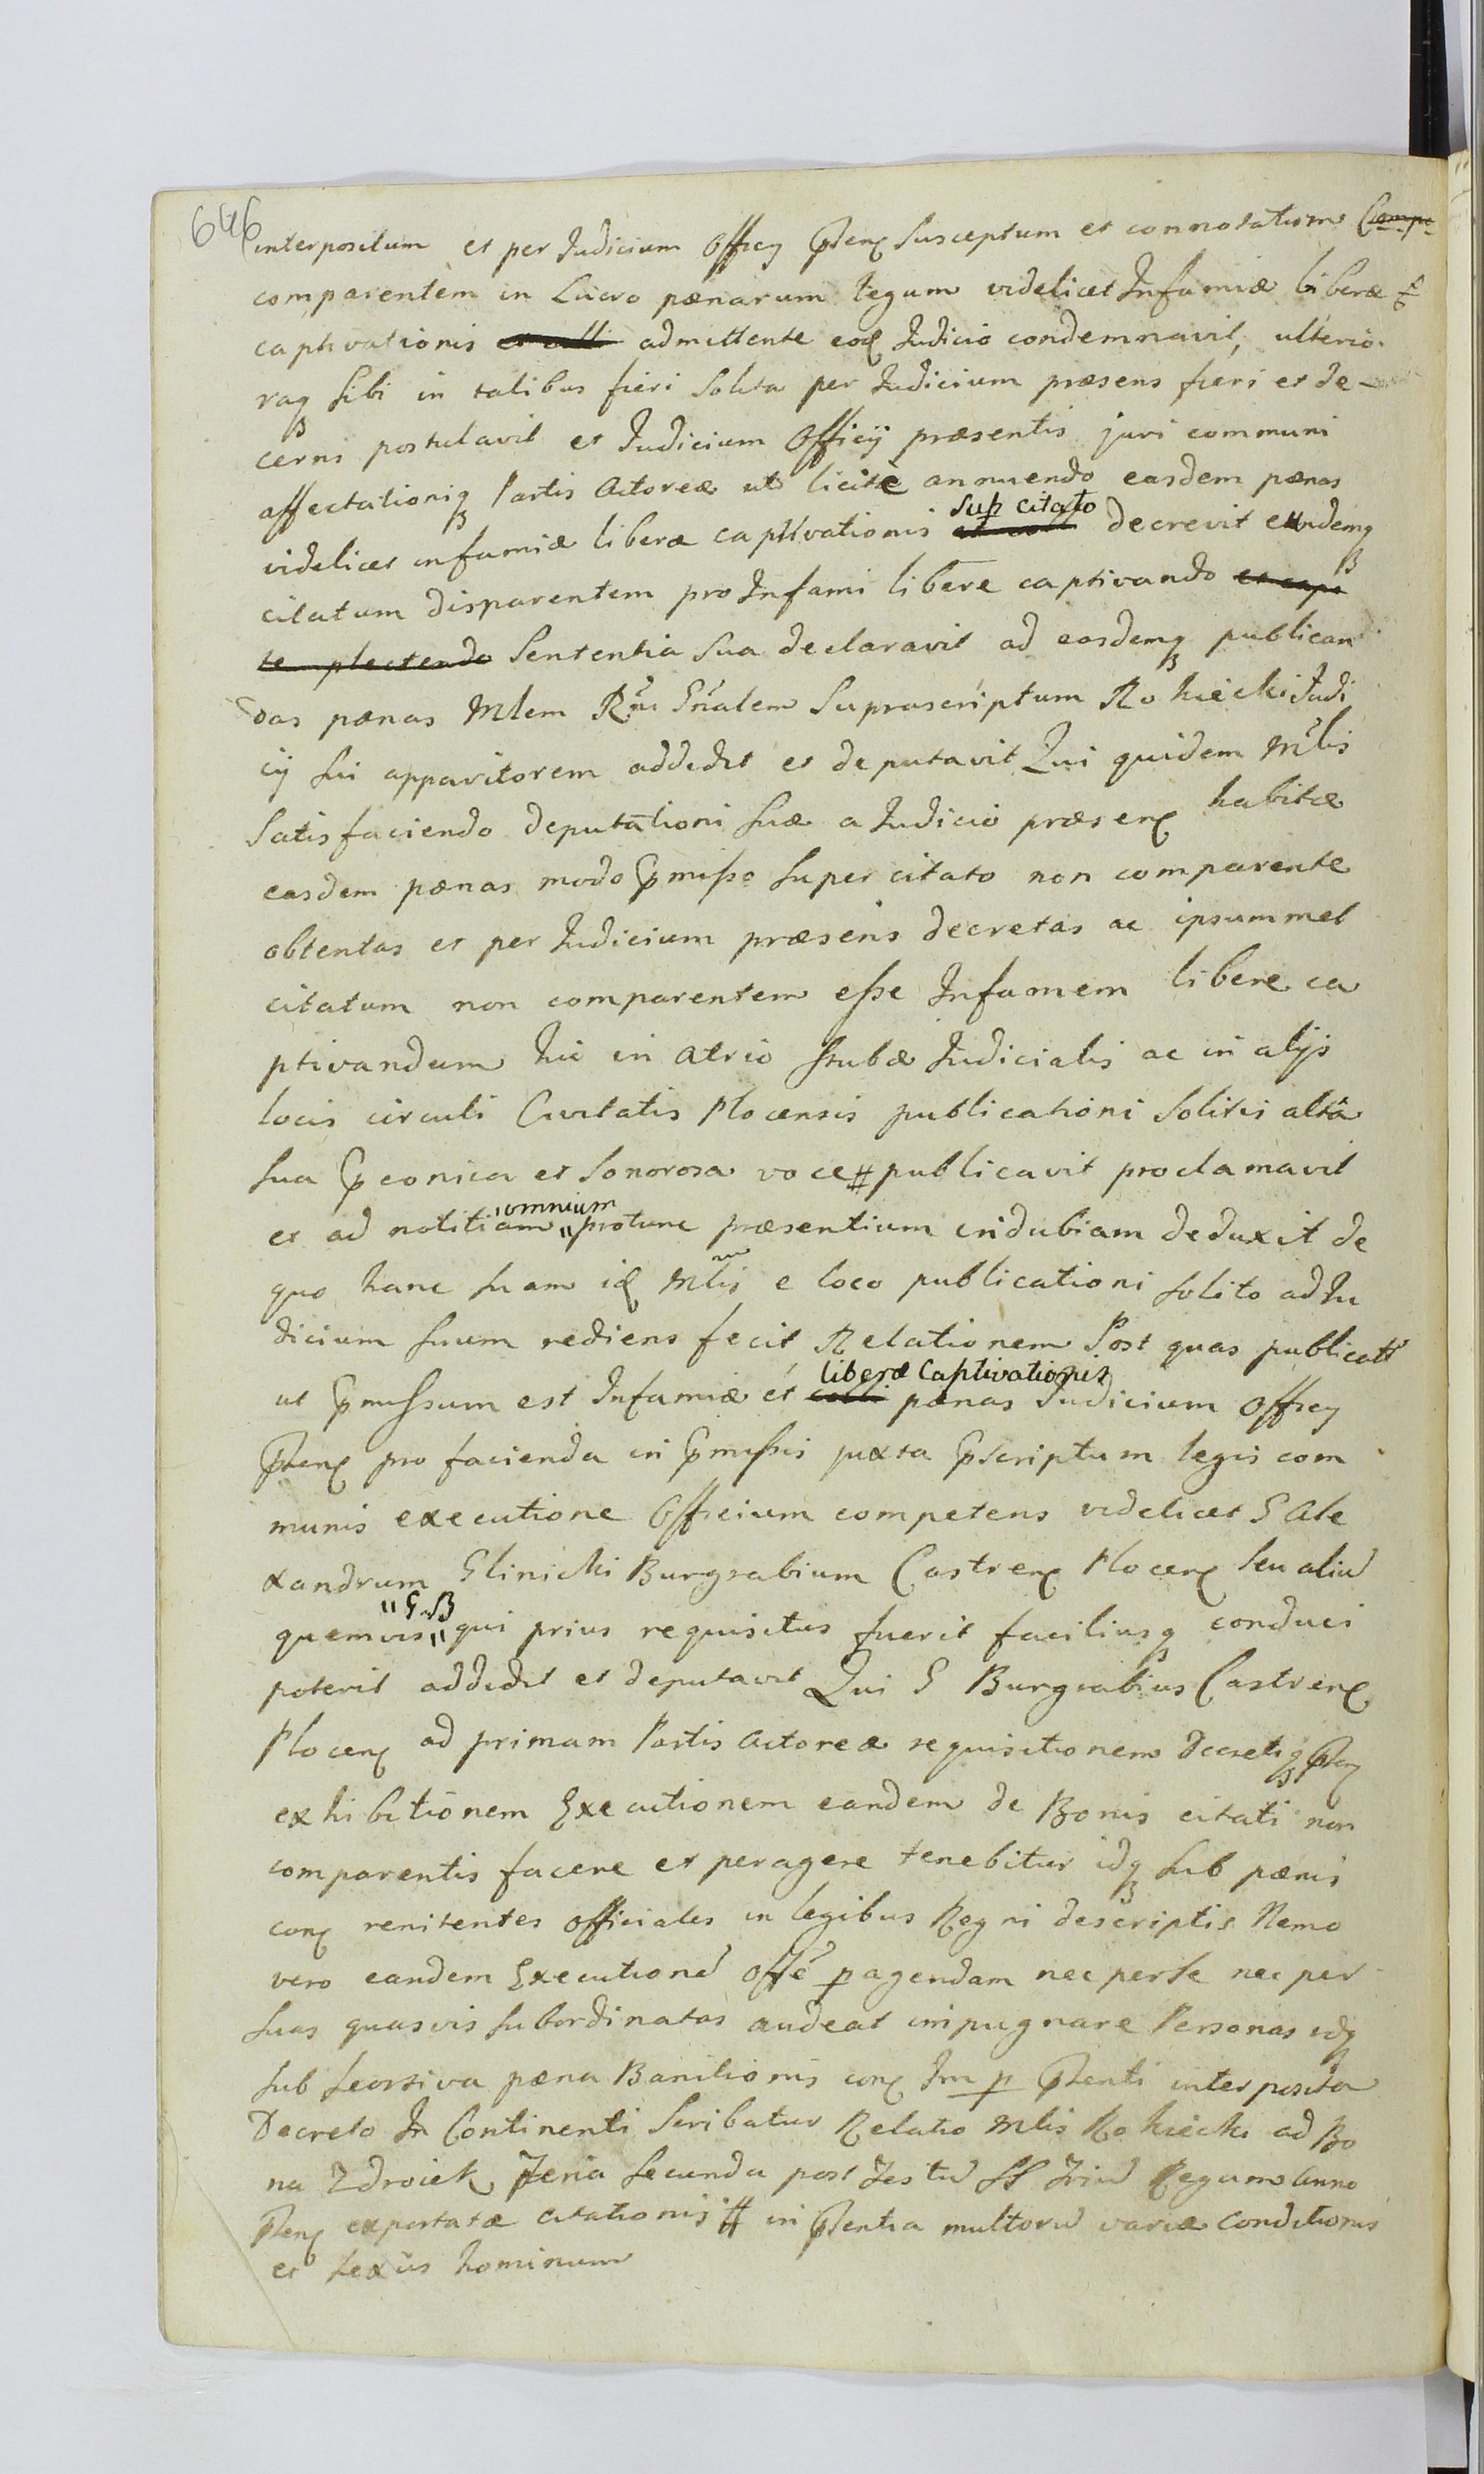 646
interpositum et per Judicium Officy Pñenς Susceptum et connotatum Compa-
comparentem in Lucro pænarum legum videlicet Infamiæ liberæ et
captivationis et colli admittente eodς Judicio condemnavit, ulterio-
raqꝫ sibi in talibus fieri Solita per Judicium præsens fieri et de-
cerni postulavit et Judicium Officij præsentis juri communi
affectationiqꝫ Partis Actoreæ uti licitè annuendo easdem pænas
sup citato
videlicet infamiæ liberæ captivationis et colli decrevit eundemqꝫ
citatum disparentem pro Infami libere captivando et capi
te plectendo Sententia Sua declaravit ad easdemqꝫ publican
das pænas Mlem Rñi Gñalem Suprascriptum Rokicki Judi
cij sui apparitorem addidit et deputavit Qui quidem Mlis
Satisfaciendo deputationi suæ a Judicio præsenς habitæ
easdem pænas modo Pmisso super citato non comparente
obtentas et per Judicium præsens decretas ac ipsummet
citatum non comparentem esse Infamem libere ca
ptivandum hic in atrio stubæ Judicialis ac in alijs
locis circuli Civitatis Plocensis publicationi Solitis altâ
sua Pconica et Sonorosa voce # publicavit proclamavit
omnium
et ad notitiam " protunc præsentium indubiam deduxit de
quo hanc suam idς Mlis e loco publicationi solito ad Ju
dicium suum rediens fecit Relationem Post quas publicatt
liberæ Captivationis
ut Pmissum est Infamiæ et colli pænas Judicium Officy
Pñenς pro facienda in Pmissis juxta Pscriptum legis com
munis executione Officium competens videlicet G Ale
xandrum Glinicki Burgrabium Castrenς Plocenς seu aliud
" G.B
quemvis " qui prius requisitus fuerit faciliusqꝫ conduci
poterit addidit et deputavit Qui G Burgrabius Castrenς
Plocenς ad primam Partis Actoreæ requisitionem Decretiqꝫ Pñenς
exhibitionem Executionem eandem de Bonis citati non
comparentis facere et peragere tenebitur idqꝫ sub pænis
conς renitentes officiales in legibus Regni descriptis Nemo
vero eandem Executioné offlé p agendam nec per se nec per
suas quasvis subordinatas audeat impugnare Personas idqꝫ
sub seorsiva pæna Banitionis conς Im p Pñenti interposita
Decreto In Continenti Scribatur Relatio Mlis Rokicki ad Bo
na Zdroiek Feria Secunda post Festu SS Triu Regum Anno
Pñenς exportatæ citationis # in Pñentia multoru variæ conditionis
et sexûs hominum